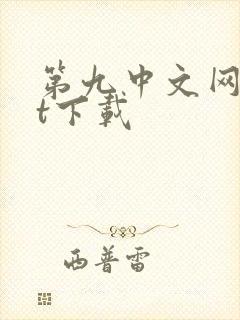 第九中文网
t下载
西普雷